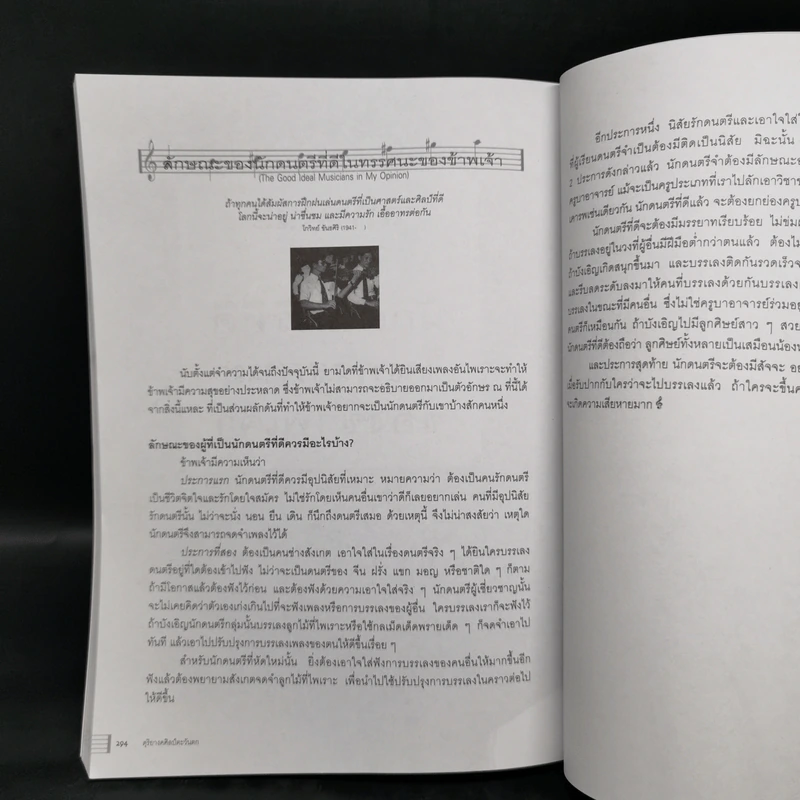 ลักษณะของนักดนตรีที่ดีในทรรศนะของข้าพเจ้า
(The Good Ideal Musicians in My Opinion)
ถ้าทุกคนได้สัมผัสการฝึกฝนเล่นดนตรีที่เป็นศาสตร์และศิลป์ที่ดี
โลกนี้จะน่าอยู่ น่าชื่นชม และมีความรัก เอื้ออาทรต่อกัน
โกวิทย์ ขันธศิริ (1941- )
นับตั้งแต่จำความได้จนถึงปัจจุบันนี้ ยามใดที่ข้าพเจ้าได้ยินเสียงเพลงอันไพเราะจะทำให้
ข้าพเจ้ามีความสุขอย่างประหลาด ซึ่งข้าพเจ้าไม่สามารถจะอธิบายออกมาเป็นตัวอักษร ณ ที่นี้ได้
จากสิ่งนี้แหละ ที่เป็นส่วนผลักดันที่ทำให้ข้าพเจ้าอยากจะเป็นนักดนตรีกับเขาบ้างสักคนหนึ่ง
ลักษณะของผู้ที่เป็นนักดนตรีที่ดีควรมีอะไรบ้าง?
ข้าพเจ้ามีความเห็นว่า
ประการแรก นักดนตรีที่ดีควรมีอุปนิสัยที่เหมาะ หมายความว่า ต้องเป็นคนรักดนตรี
เป็นชีวิตจิตใจและรักโดยใจสมัคร ไม่ใช่รักโดยเห็นคนอื่นเขาว่าดีก็เลยอยากเล่น คนที่มีอุปนิสัย
รักดนตรีนั้น ไม่ว่าจะนั่ง นอน ยืน เดิน ก็นึกถึงดนตรีเสมอ ด้วยเหตุนี้ จึงไม่น่าสงสัยว่า เหตุใด
นักดนตรีจึงสามารถจดจำเพลงไว้ได้
ประการที่สอง ต้องเป็นคนช่างสังเกต เอาใจใส่ในเรื่องดนตรีจริง ๆ ได้ยินใครบรรเลง
ดนตรีอยู่ที่ใดต้องเข้าไปฟัง ไม่ว่าจะเป็นดนตรีของ จีน ฝรั่ง แขก มอญ หรือชาติใด ๆ ก็ตาม
ถ้ามีโอกาสแล้วต้องฟังไว้ก่อน และต้องฟังด้วยความเอาใจใส่จริง ๆ นักดนตรีผู้เชี่ยวชาญนั้น
จะไม่เคยคิดว่าตัวเองเก่งเกินไปที่จะฟังเพลงหรือการบรรเลงของผู้อื่น ใครบรรเลงเราก็จะฟังไว้
ถ้าบังเอิญนักดนตรีกลุ่มนั้นบรรเลงลูกไม้ที่ไพเราะหรือใช้กลเม็ดเด็ดพรายเด็ด ๆ ก็จดจำเอาไป
ทันที แล้วเอาไปปรับปรุงการบรรเลงเพลงของตนให้ดีขึ้นเรื่อย ๆ
สำหรับนักดนตรีที่หัดใหม่นั้น ยิ่งต้องเอาใจใส่ฟังการบรรเลงของคนอื่นให้มากขึ้นอีก
ฟังแล้วต้องพยายามสังเกตจดจำลูกไม้ที่ไพเราะ เพื่อนำไปใช้ปรับปรุงการบรรเลงในคราวต่อไป
ให้ดีขึ้น
294 ดุริยางคศิลป์ตะวันตก
อีกประการหนึ่ง นิสัยรักดนตรีและเอาใจใส่
ที่ผู้เรียนดนตรีจำเป็นต้องมีติดเป็นนิสัย มิฉะนั้น
2 ประการดังกล่าวแล้ว นักดนตรีจำต้องมีลักษณะ
ครูบาอาจารย์ แม้จะเป็นครูประเภทที่เราไปลักเอาวิชา
เคารพเช่นเดียวกัน นักดนตรีที่ดีแล้ว จะต้องยกย่องครู
นักดนตรีที่ดีจะต้องมีมรรยาทเรียบร้อย ไม่ข่ม
ถ้าบรรเลงอยู่ในวงที่ผู้อื่นมีฝีมือต่ำกว่าตนแล้ว ต้อง
ถ้าบังเอิญเกิดสนุกขึ้นมา และบรรเลงติดกันรวดเร็ว
และรีบลดระดับลงมาให้คนที่บรรเลงด้วยกันบรรเลง
บรรเลงในขณะที่มีคนอื่น ซึ่งไม่ใช่ครูบาอาจารย์ร่วม
ดนตรีก็เหมือนกัน ถ้าบังเอิญไปมีลูกศิษย์สาว ๆ สวย
นักดนตรีที่ดีต้องถือว่า ลูกศิษย์ทั้งหลายเป็นเสมือนน้อง
และประการสุดท้าย นักดนตรีจะต้องมีสัจจะ
เมื่อรับปากกับใครว่าจะไปบรรเลงแล้ว ถ้าใครจะขึ้น
จะเกิดความเสียหายมาก